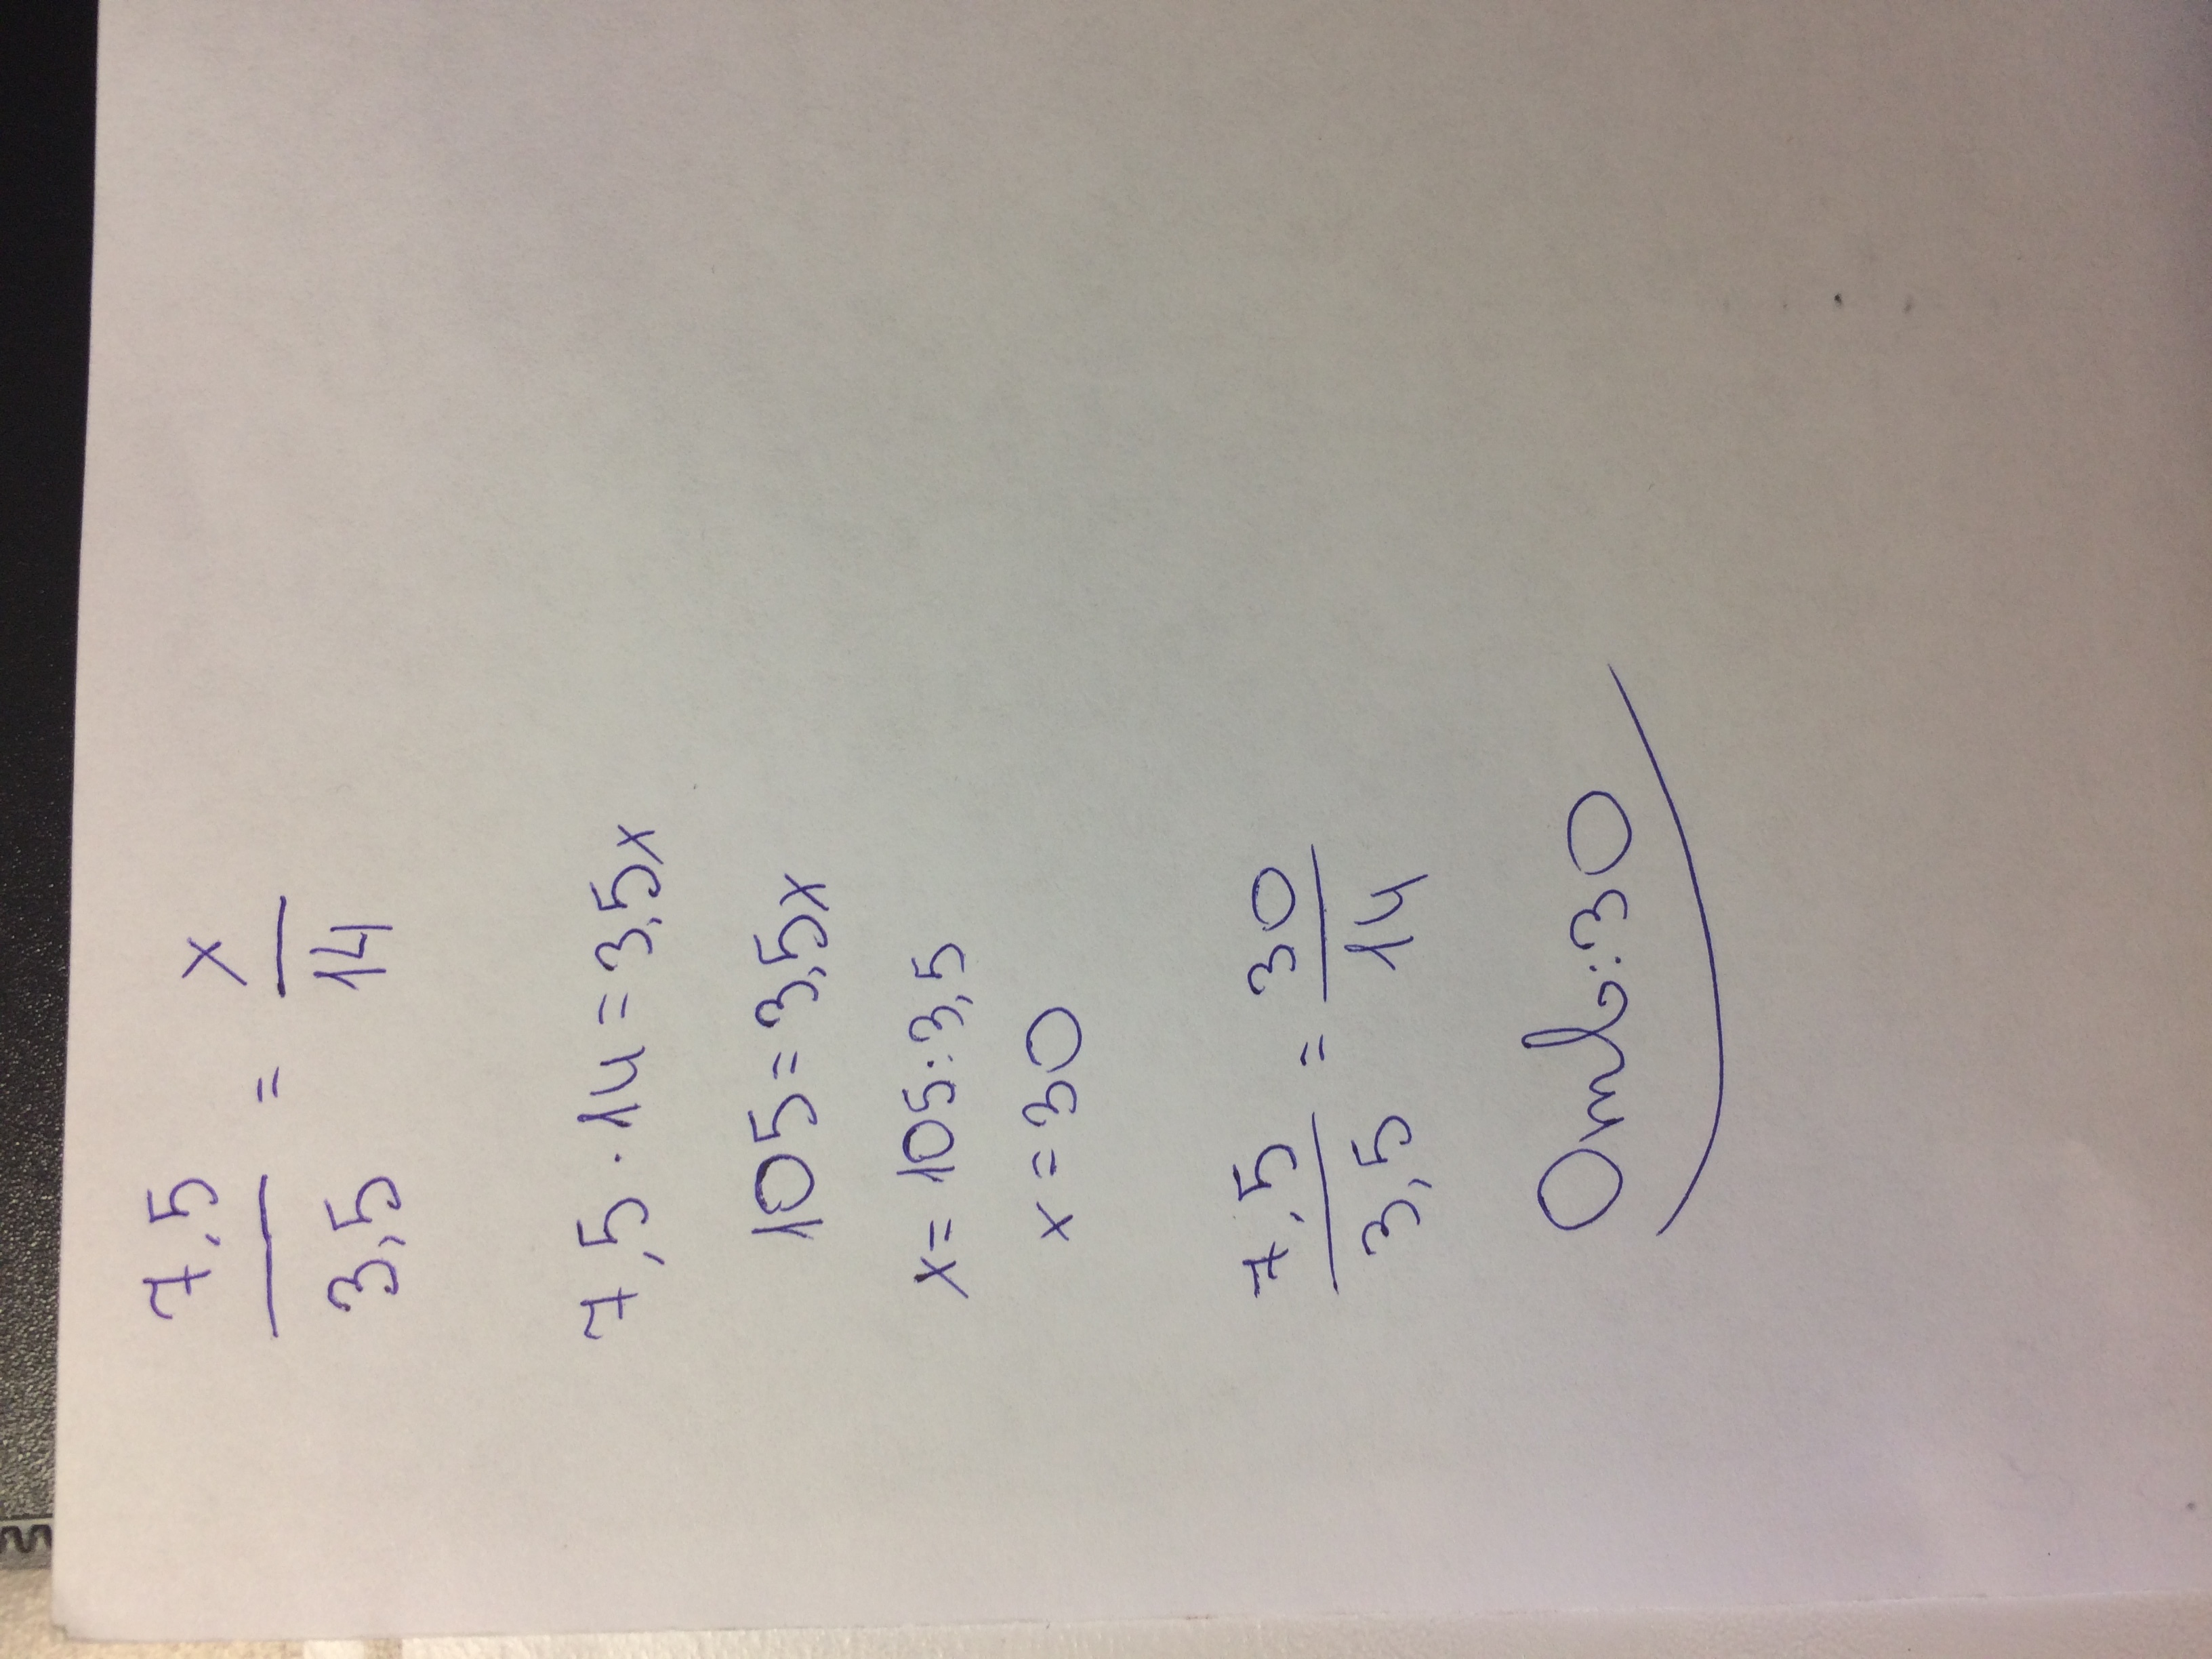 7,5/3,5 = x/14
7,5 · 14 = 3,5x
105 = 3,5x
x = 105 : 3,5
x = 30
7,5/3,5 = 30/14
Ответ: 30